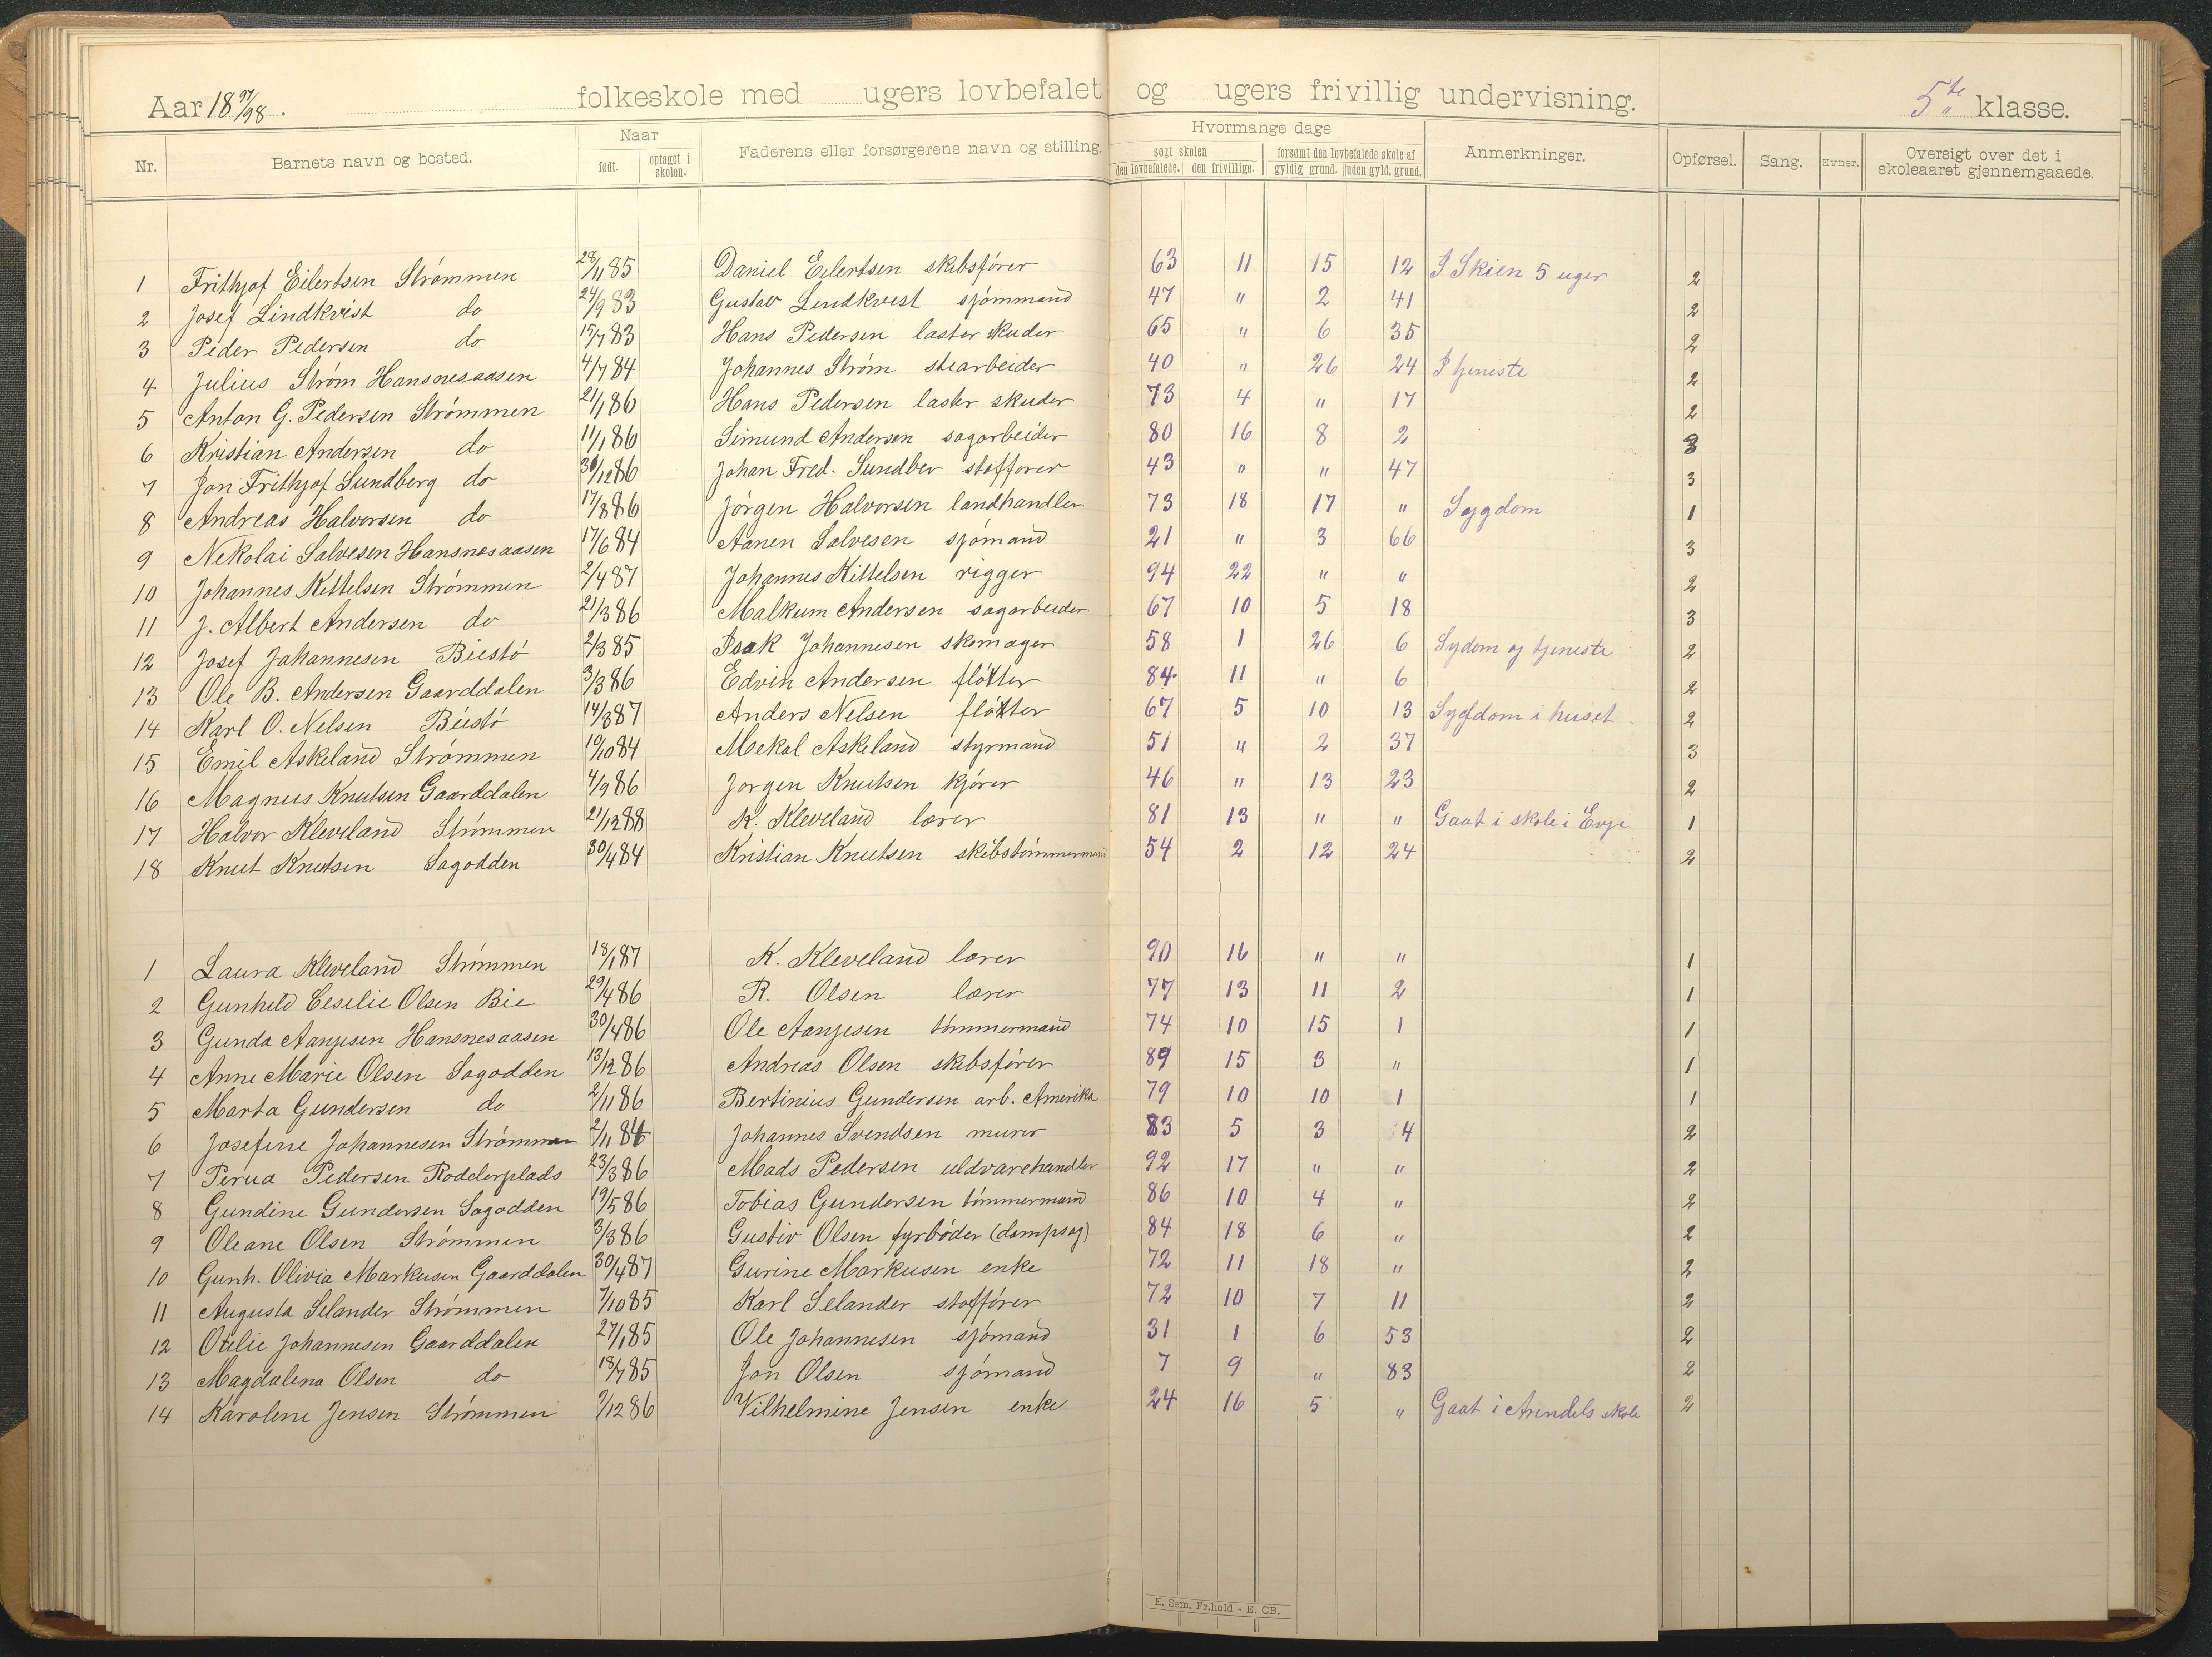 Aar 18 97/98. folkeskole med ugers lovbefalet og ugers frivillig undervisning. 5te klasse.
Nr. Barnets navn og bosted. Naar født. optaget i skolen. Faderens eller forsørgerens navn og stilling. Hvormange dage søgt skolen den lovbefalede. den frivillige. forsømt den lovbefalede skole af gyldig grund. uden gyld. grund. Anmerkninger. Opførsel. Sang. Evner. Oversigt over det i skoleaaret gjennemgaaede.
1 Frithjof Eilertsen Strømmen 28/11 85 Daniel Eilertsen skibsfører 63 11 15 12 I Skien 5 uger 2
2 Josef Lindkvist do 24/9 83 Gustav Lindkvist sjømmand 47 " 2 41 2
3 Peder Pedersen do 15/7 83 Hans Pedersen laster skuder 65 " 6 35 2
4 Julius Strøm Hansnesaasen 4/7 84 Johannes Strøm stearbeider 40 " 26 24 I tjeneste 2
5 Anton G. Pedersen Strømmen 21/1 86 Hans Pedersen laster skuder 73 4 " 17 2
6 Kristian Andersen do 11/1 86 Simund Andersen sagarbeider 80 16 8 2 3
7 Jon Frithjof Sundberg do 30/12 86 Johan Fred. Sundber stafforer 43 " " 47 3
8 Andreas Halvorsen do 17/8 86 Jørgen Halvorsen landhandler 73 18 17 " Sygdom 1
9 Nekolai Salvesen Hansnesaasen 17/6 84 Aanen Salvesen sjømand 21 " 3 66 3
10 Johannes Kittelsen Strømmen 2/4 87 Johannes Kittelsen rigger 94 22 " " 2
11 J. Albert Andersen do 21/3 86 Malkum Andersen sagarbeider 67 10 5 18 3
12 Josef Johannesen Biestø 2/3 85 Isak Johannesen skomager 58 1 26 6 Sydom og tjeneste 2
13 Ole B. Andersen Gaarddalen 3/3 86 Edvin Andersen fløtter 84 11 " 6 2
14 Karl O. Nelsen Biestø 14/3 87 Anders Nelsen fløtter 67 5 10 13 Sygdom i huset 2
15 Emil Askeland Strømmen 19/10 84 Mekal Askeland styrmand 51 " 2 37 3
16 Magnus Knutsen Gaarddalen 4/9 86 Jorgen Knutsen kjører 46 " 13 23 2
17 Halvor Kleveland Strømmen 21/12 88 K. Kleveland lærer 81 13 " " Gaat i skole i Evje 1
18 Knut Knutsen Sagodden 30/4 84 Kristian Knutsen skibstømmermand 54 2 12 24 2
1 Laura Kleveland Strømmen 18/1 87 K. Kleveland lærer 90 16 " " 1
2 Gunhild Cesilie Olsen Bie 29/4 86 R. Olsen lærer 77 13 11 2 1
3 Gunda Aanjesen Hansnesaasen 30/4 86 Ole Aanjesen tømmermand 74 10 15 1 1
4 Anne Marie Olsen Sagodden 13/12 86 Andreas Olsen skibsfører 89 15 3 " 1
5 Marta Gundersen do 2/11 86 Bertinius Gundersen arb. Amerika 79 10 10 1 1
6 Josefine Johannesen Strømmen 2/11 84 Johannes Svendsen murer 83 5 3 4 2
7 Perua Pedersen Rodderplads 23/3 86 Mads Pedersen uldvarehandler 92 17 " " 2
8 Gundine Gundersen Sagodden 19/5 86 Tobias Gundersen tømmermand 86 10 4 " 2
9 Oleane Olsen Strømmen 3/3 86 Gustav Olsen fyrbøder (dampsag) 84 18 6 " 2
10 Gunh. Olivia Markusen Gaarddalen 30/4 87 Gurine Markusen enke 72 11 18 " 2
11 Augusta Selander Strømmen 7/10 85 Karl Selander stoffører 72 10 7 11 2
12 Otilie Johannesen Gaarddalen 27/1 85 Ole Johannesen sjømand 31 1 6 53 2
13 Magdalena Olsen do 18/7 85 Jon Olsen sjømand 7 9 " 83 2
14 Karoline Jensen Strømmen 7/12 86 Vilhelmine Jensen enke 24 16 5 " Gaat i Arendals skole 2
E. Sem, Fr.hald - E. CB.